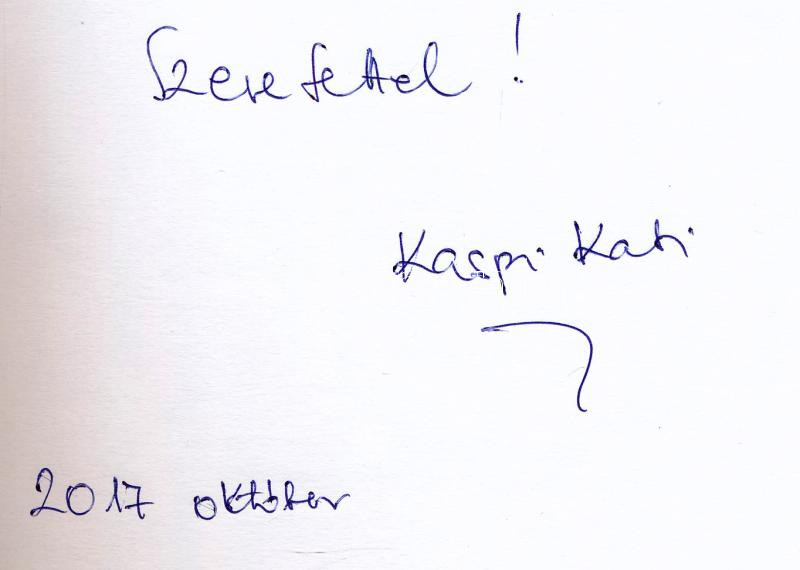 Szeretettel !
Kaspi Kati
2017 október